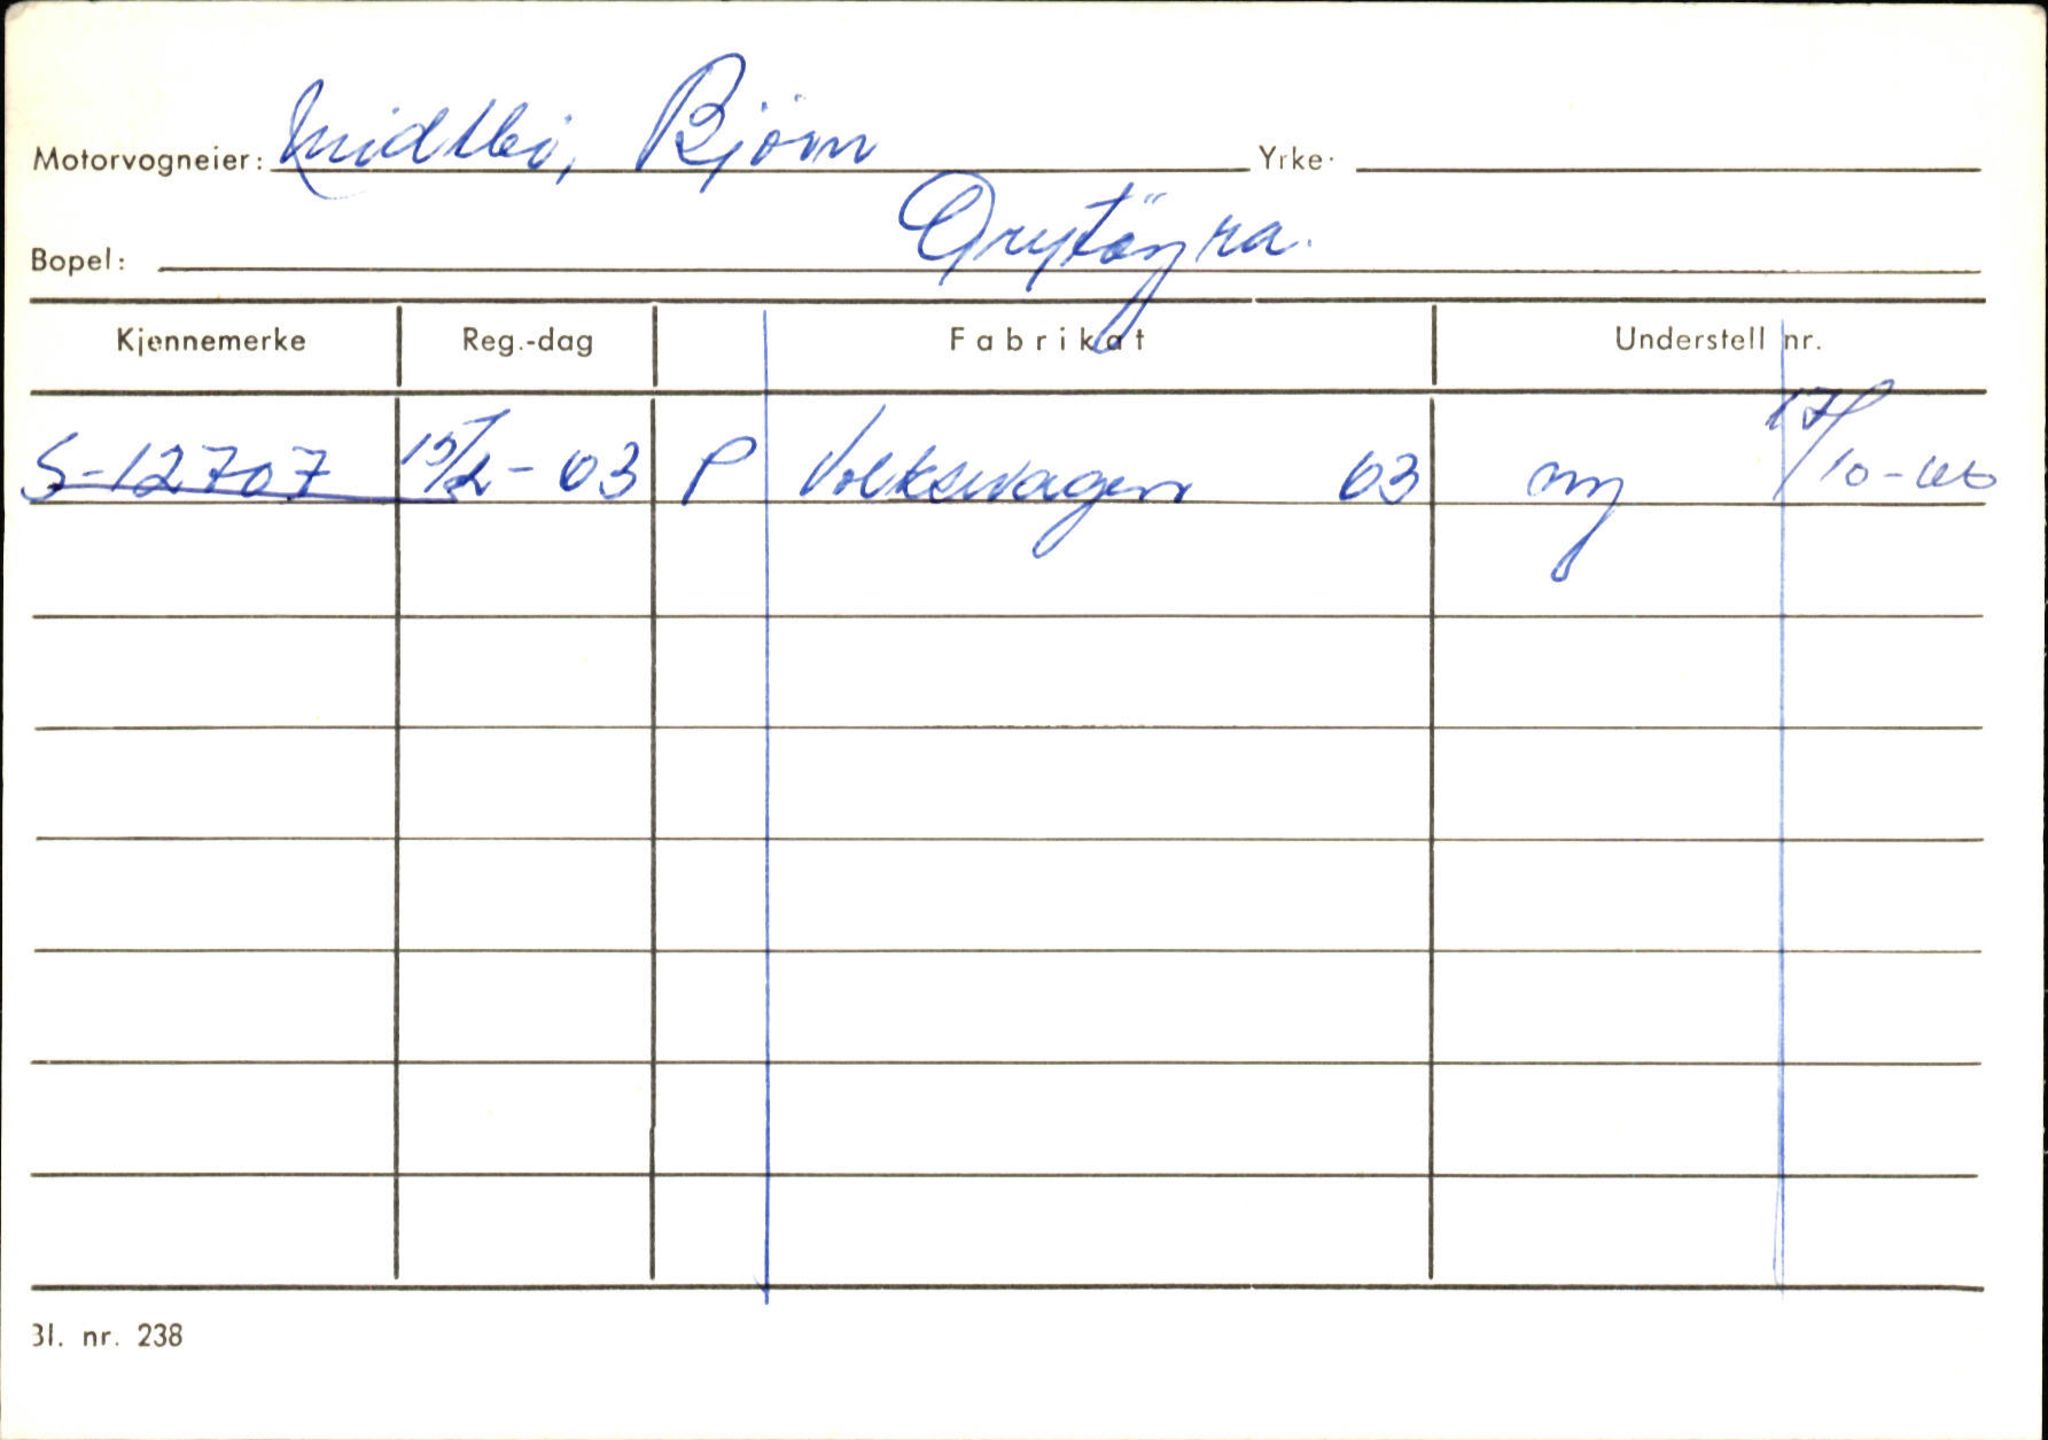 Motorvogneier: Midtbö, Bjørn Yrke.
Bopel: Grytöyra.
Kjennemerke Reg.-dag Fabrikat Understell nr.
S-12707 15/2-63 P Volkswagen 63 ny 17/10-66
Bl. nr. 238